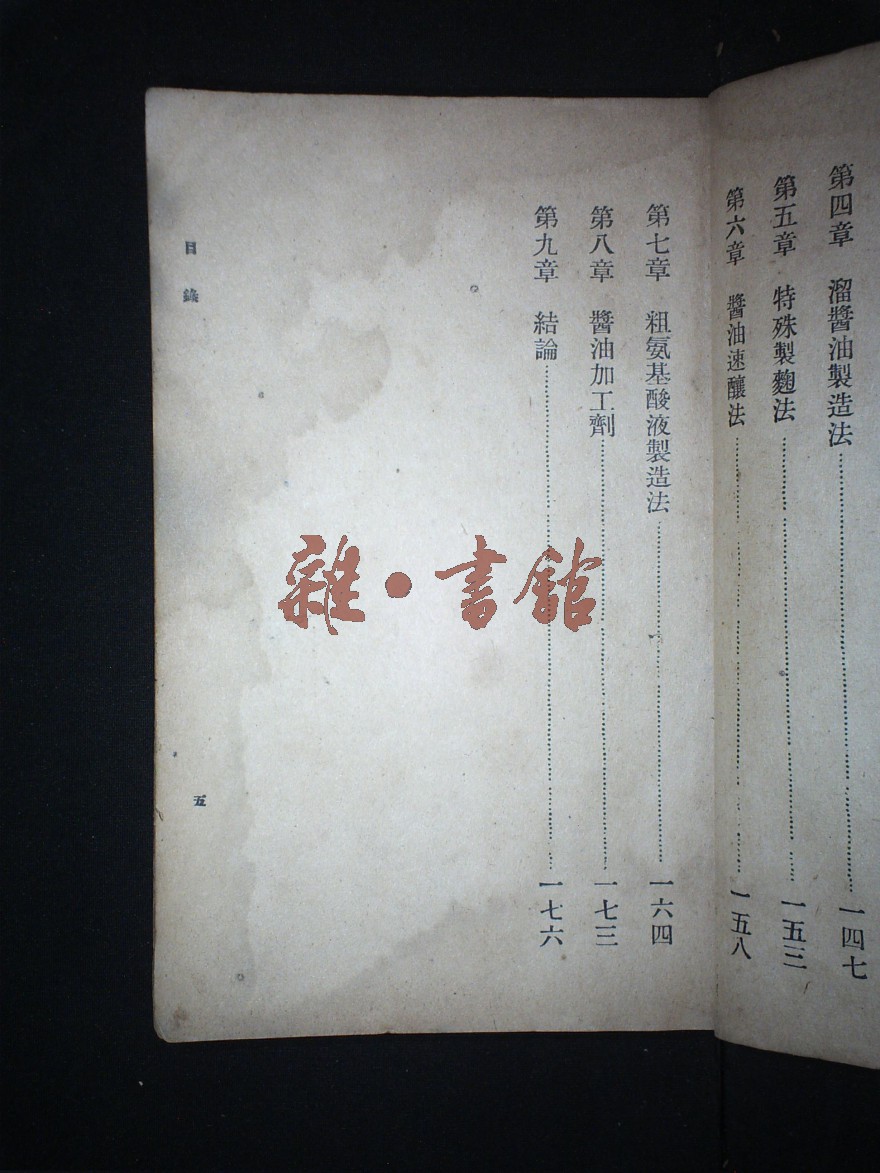 第四章　溜醬油製造法……一四七
第五章　特殊製麴法……一五三
第六章　醬油速釀法……一五八
第七章　粗氨基酸液製造法……一六四
第八章　醬油加工劑……一七三
第九章　結論……一七六
目錄
五
雜·書館